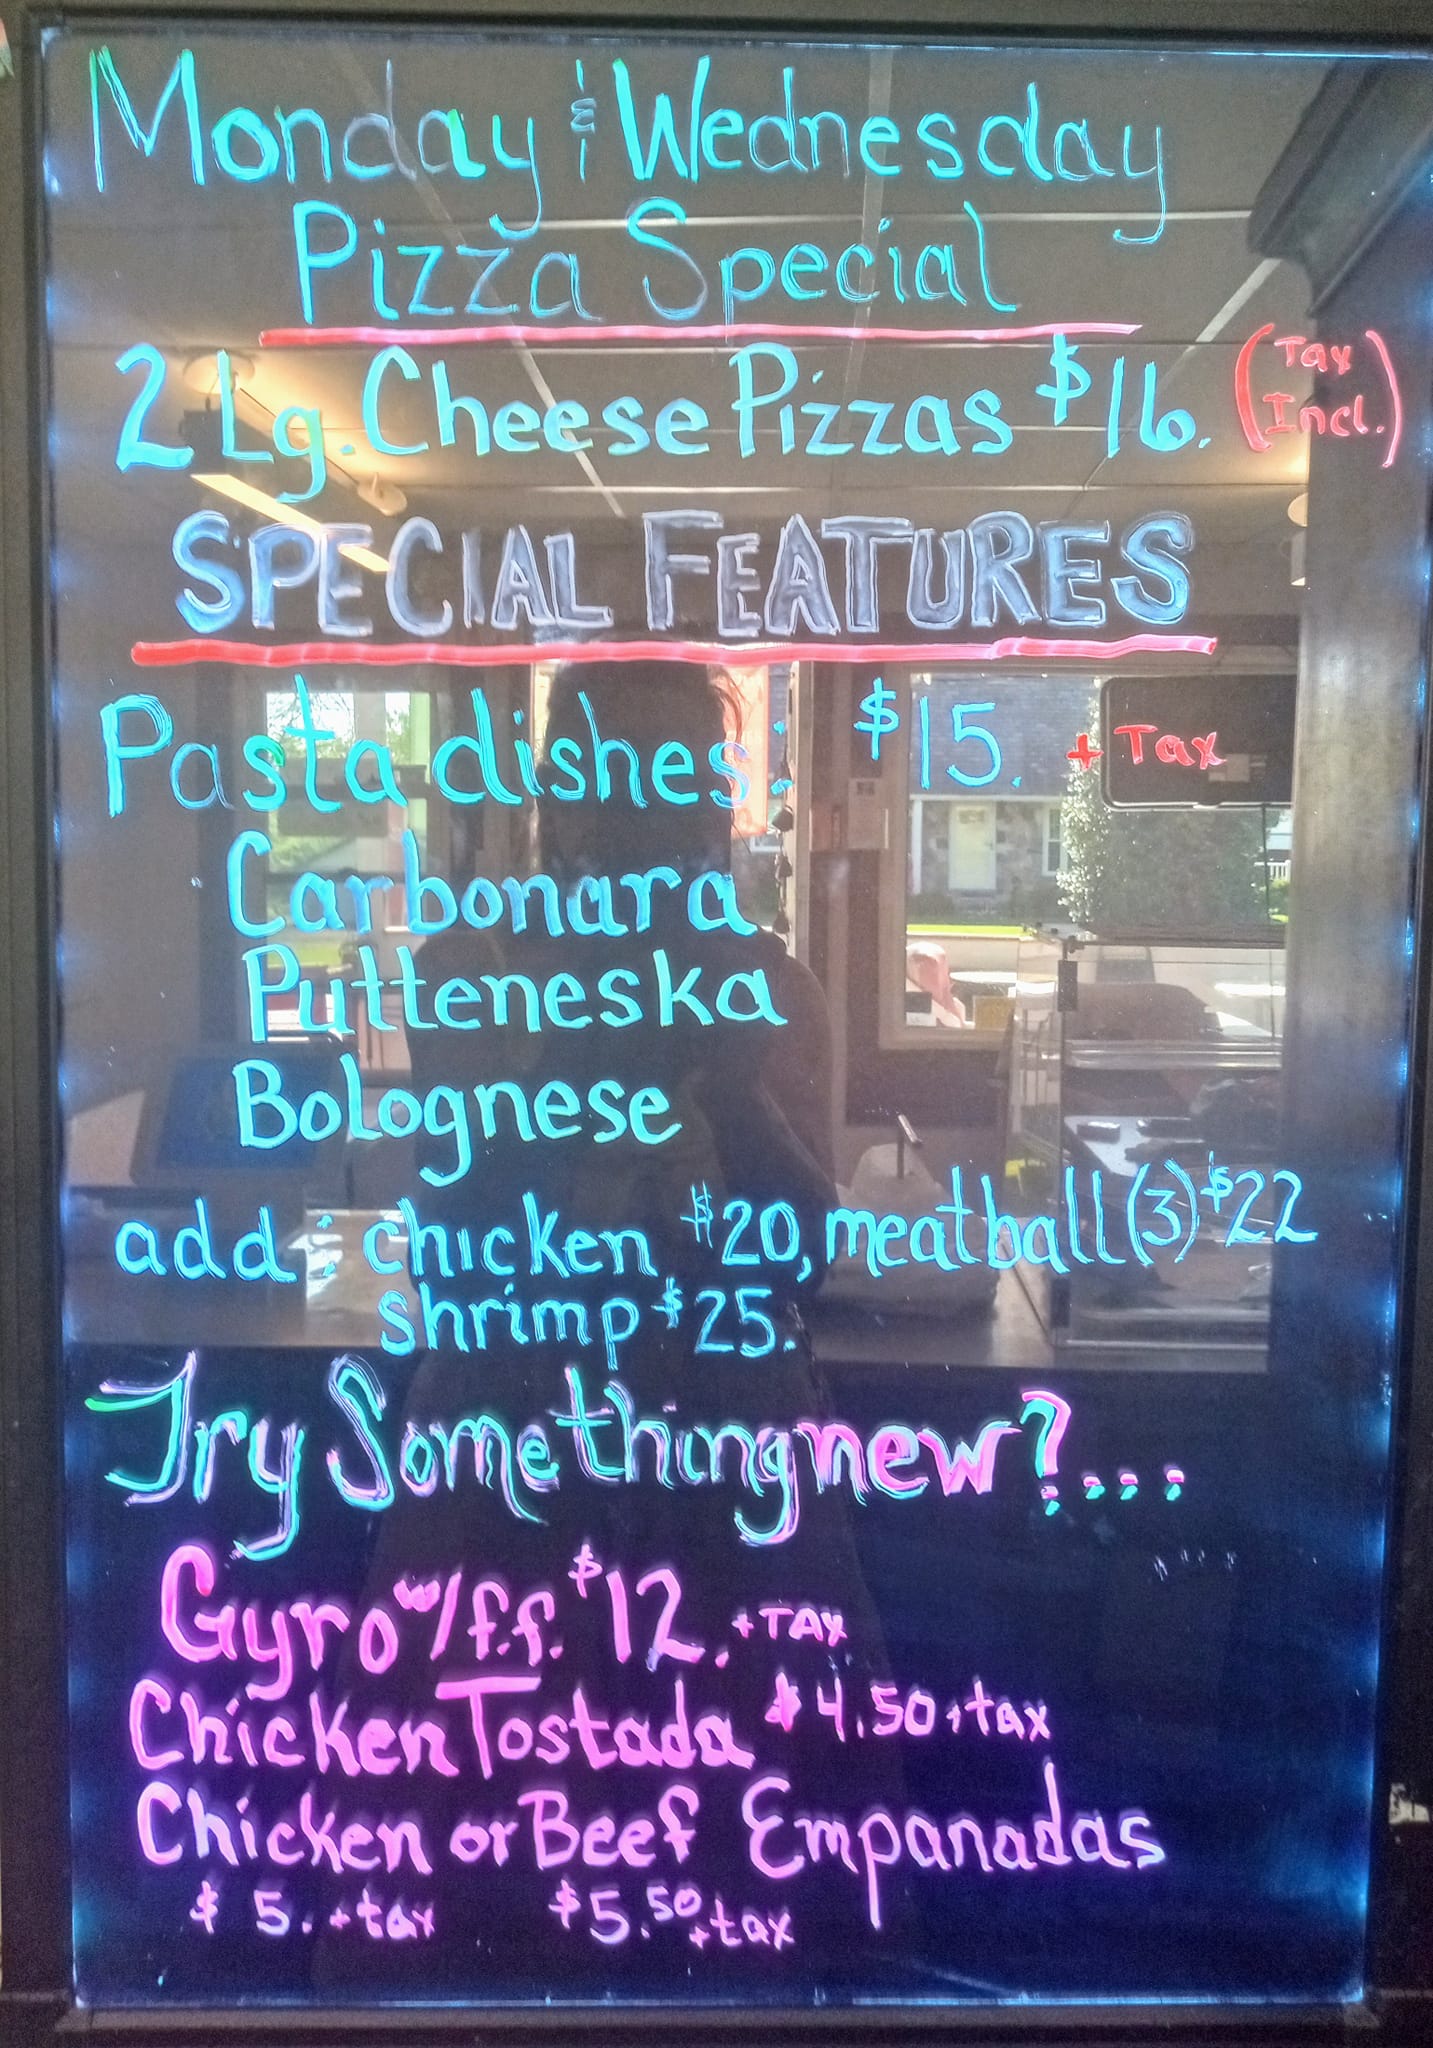 Monday & Wednesday
Pizza Special
2 Lg. Cheese Pizzas $16. (Tax Incl.)
SPECIAL FEATURES
Pasta dishes: $15. + Tax
Carbonara
Putteneska
Bolognese
add: chicken $20, meatball (3) $22
shrimp $25.
Try Something new?...
Gyro w/f.f. $12. + TAX
Chicken Tostada $4.50 + tax
Chicken or Beef Empanadas
$5. + tax $5.50 + tax